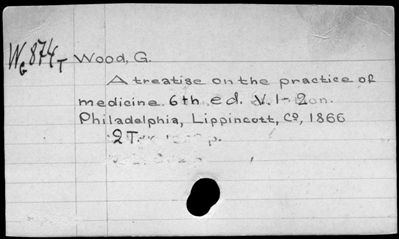 WG 874 T Wood, G.
A treatise on the practice of
medicine. 6th ed. V. 1-2
Philadelphia, Lippincott, Co, 1866
2 T.